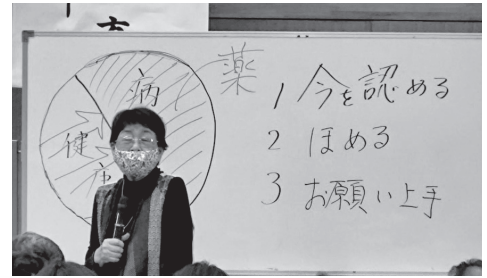 病
薬
健
1 今を認める
2 ほめる
3 お願い上手